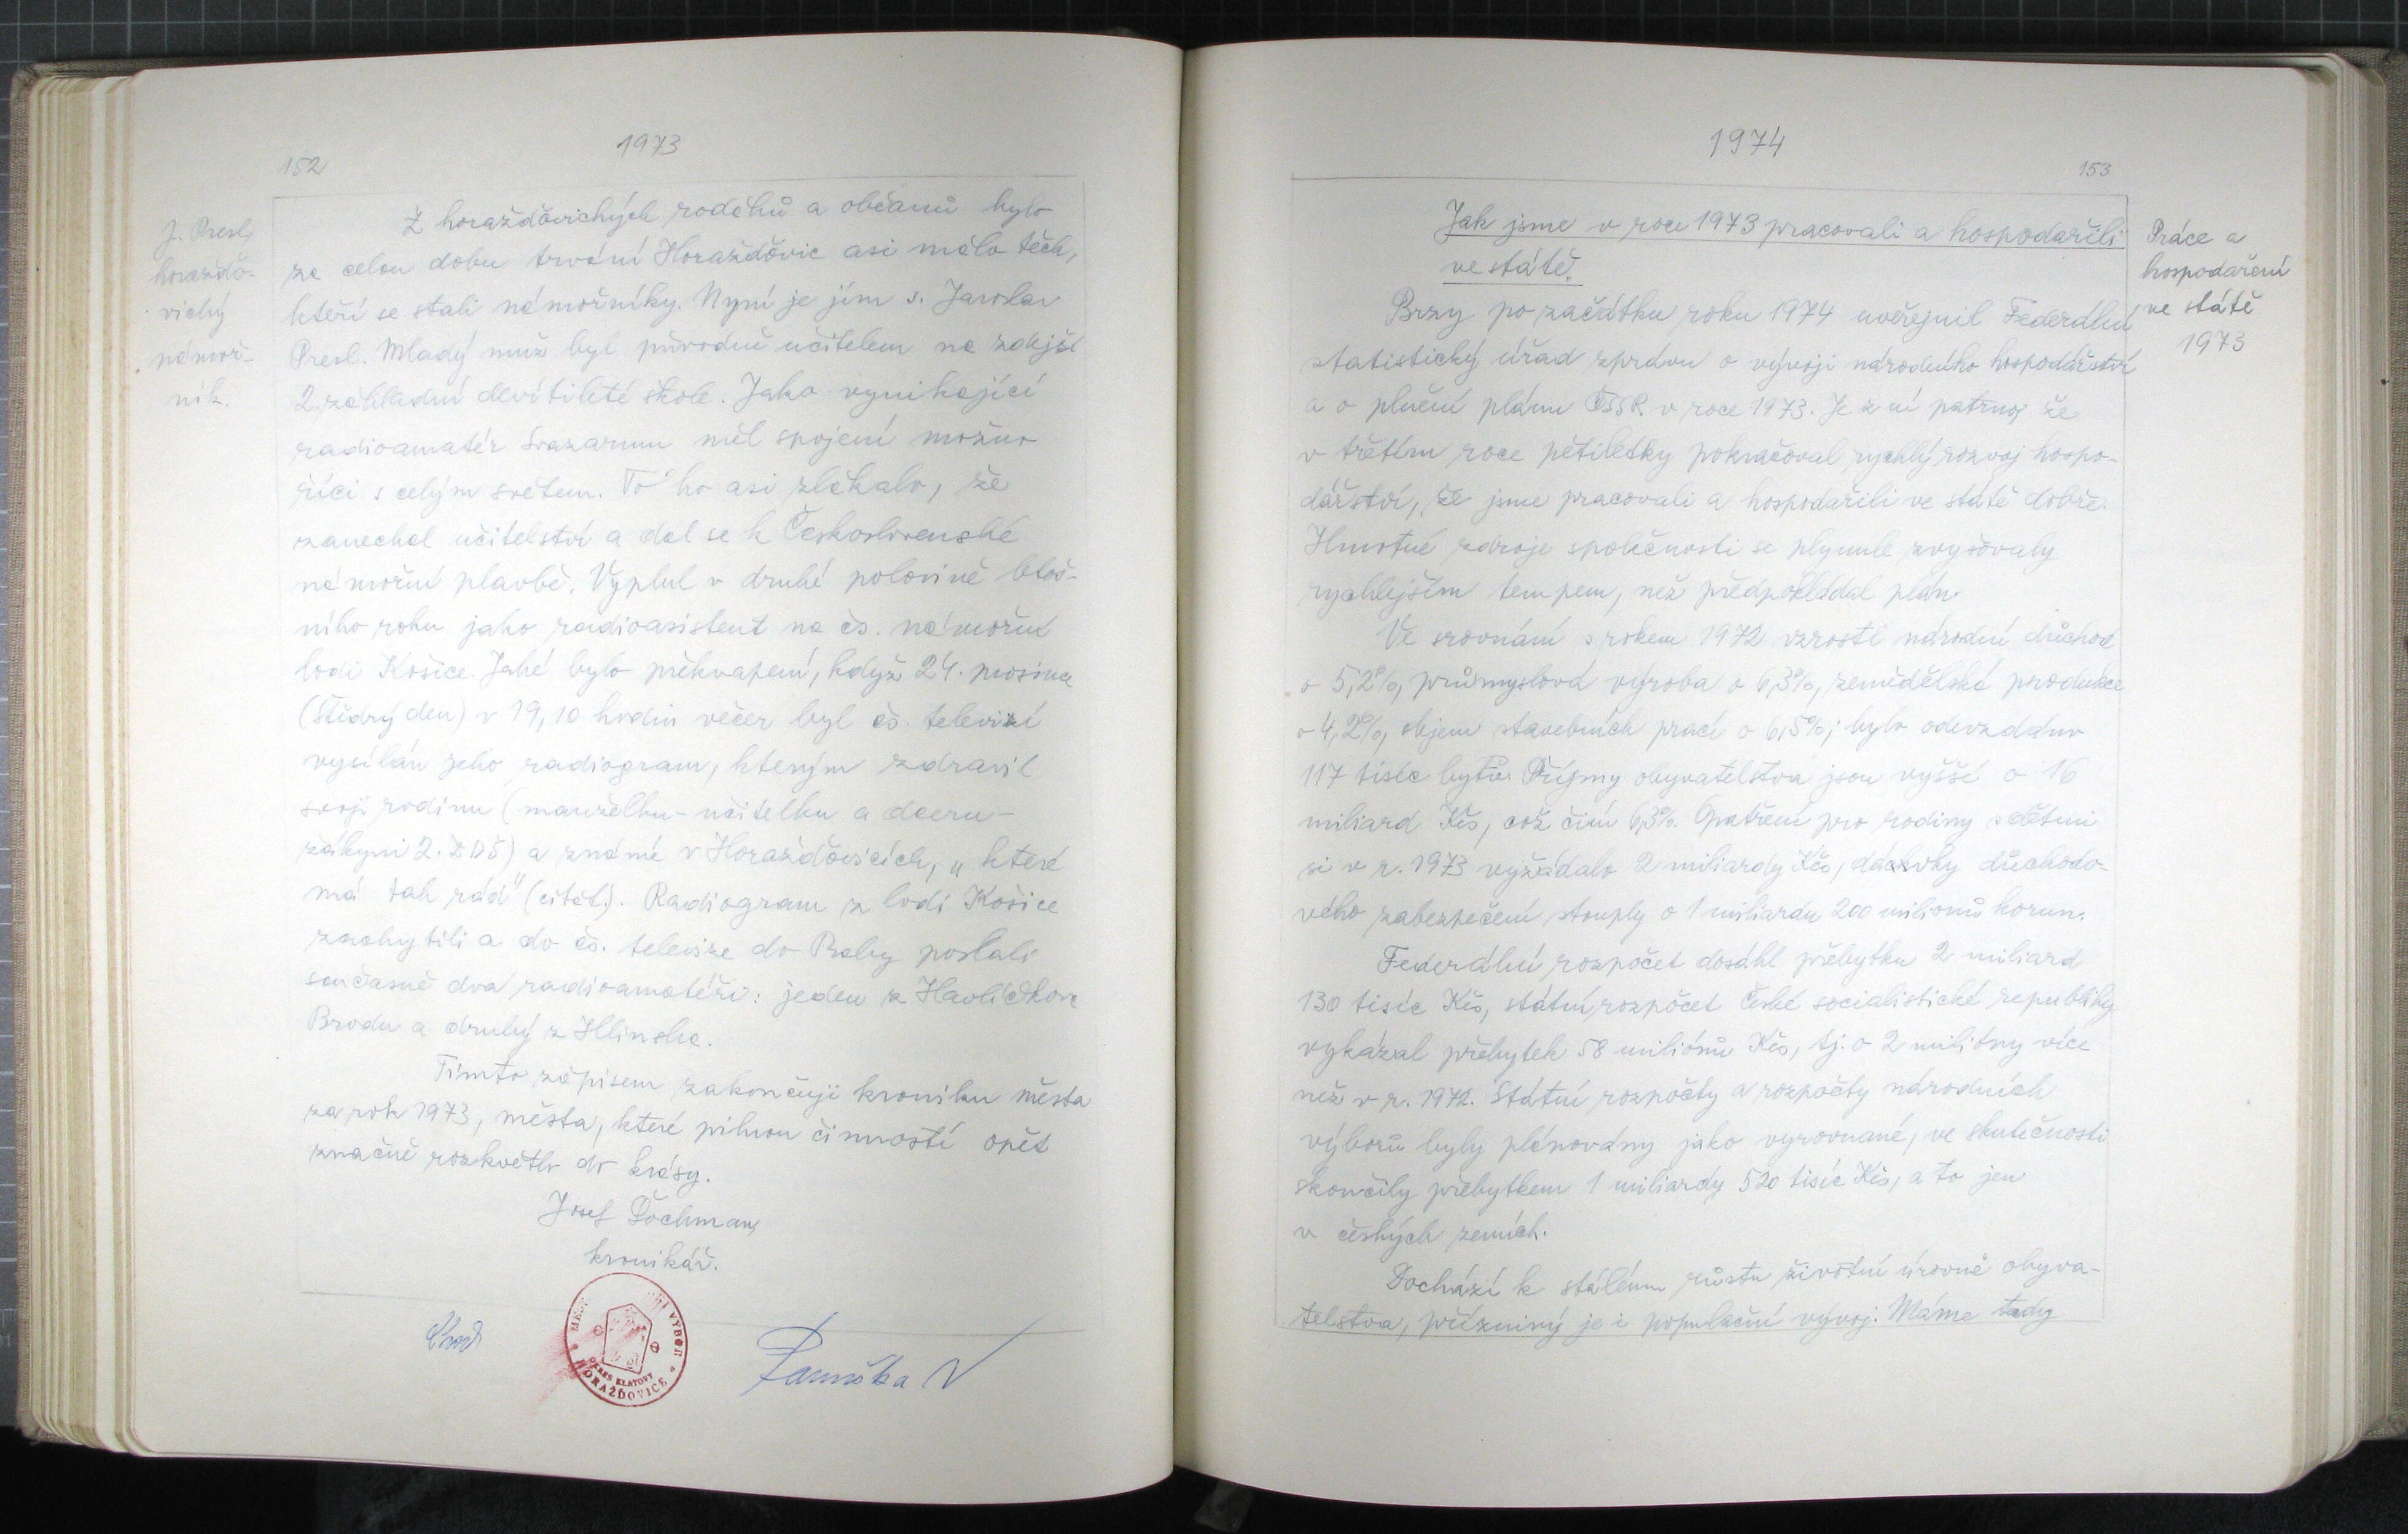 1973
152
J. Presl,
horažďo-
vický
námoř-
ník.
Z horažďovických rodáků a občanů bylo
za celou dobu trvání Horažďovic asi málo těch,
kteří se stali námořníky. Nyní je jím s. Jaroslav
Presl. Mladý muž byl původně učitelem na zdejší
2. základní devítileté škole. Jako vynikající
radioamatér Svazarmu měl spojení možno
říci s celým světem. To ho asi zlákalo, že
zanechal učitelství a dal se k Československé
námořní plavbě. Vyplul v druhé polovině letoš-
ního roku jako radioasistent na čs. námořní
lodi Košice. Jaké bylo překvapení, když 24. prosince
(Štědrý den) v 19,10 hodin večer byl čs. televizí
vysílán jeho radiogram, kterým zdravil
svoji rodinu (manželku-učitelku a dceru-
žákyni 2. ZDŠ) a známé v Horažďovicích, "které
má tak rád" (citát). Radiogram z lodi Košice
zachytili a do čs. televize do Prahy poslali
současně dva radioamatéři: jeden z Havlíčkova
Brodu a druhý z Hlinska.
Tímto zápisem zakončuji kroniku města
za rok 1973, města, které pilnou činností opět
značně rozkvětlo do krásy.
Josef Pochman,
kronikář.
MĚST NÍ VÝBOR
OKRES KLATOVY
HORAŽĎOVICE
1974
153
Jak jsme v roce 1973 pracovali a hospodařili
ve státě.
Práce a
hospodaření
ve státě
1973
Brzy po začátku roku 1974 uveřejnil Federální
statistický úřad zprávu o vývoji národního hospodářství
a o plnění plánu ČSSR v roce 1973. Je z ní patrno, že
v třetím roce pětiletky pokračoval rychlý rozvoj hospo-
dářství, že jsme pracovali a hospodařili ve státě dobře.
Hmotné zdroje společnosti se plynule zvyšovaly
rychlejším tempem, než předpokládal plán.
Ve srovnání s rokem 1972 vzrostl národní důchod
o 5,2%, průmyslová výroba o 6,3%, zemědělská produkce
o 4,2%, objem stavebních prací o 6,5%; bylo odevzdáno
117 tisíc bytů. Příjmy obyvatelstva jsou vyšší o 16
miliard Kčs, což činí 6,3%. Opatření pro rodiny s dětmi
si v r. 1973 vyžádalo 2 miliardy Kčs, dávky důchodo-
vého zabezpečení stouply o 1 miliardu 200 milionů korun.
Federální rozpočet dosáhl přebytku 2 miliard
130 tisíc Kčs, státní rozpočet České socialistické republiky
vykázal přebytek 58 miliónů Kčs, tj. o 2 milióny více
než v r. 1972. Státní rozpočty a rozpočty národních
výborů byly plánovány jako vyrovnané, ve skutečnosti
skončily přebytkem 1 miliardy 520 tisíc Kčs, a to jen
v českých zemích.
Dochází k stálému růstu životní úrovně obyva-
telstva, příznivý je i populační vývoj. Máme tedy